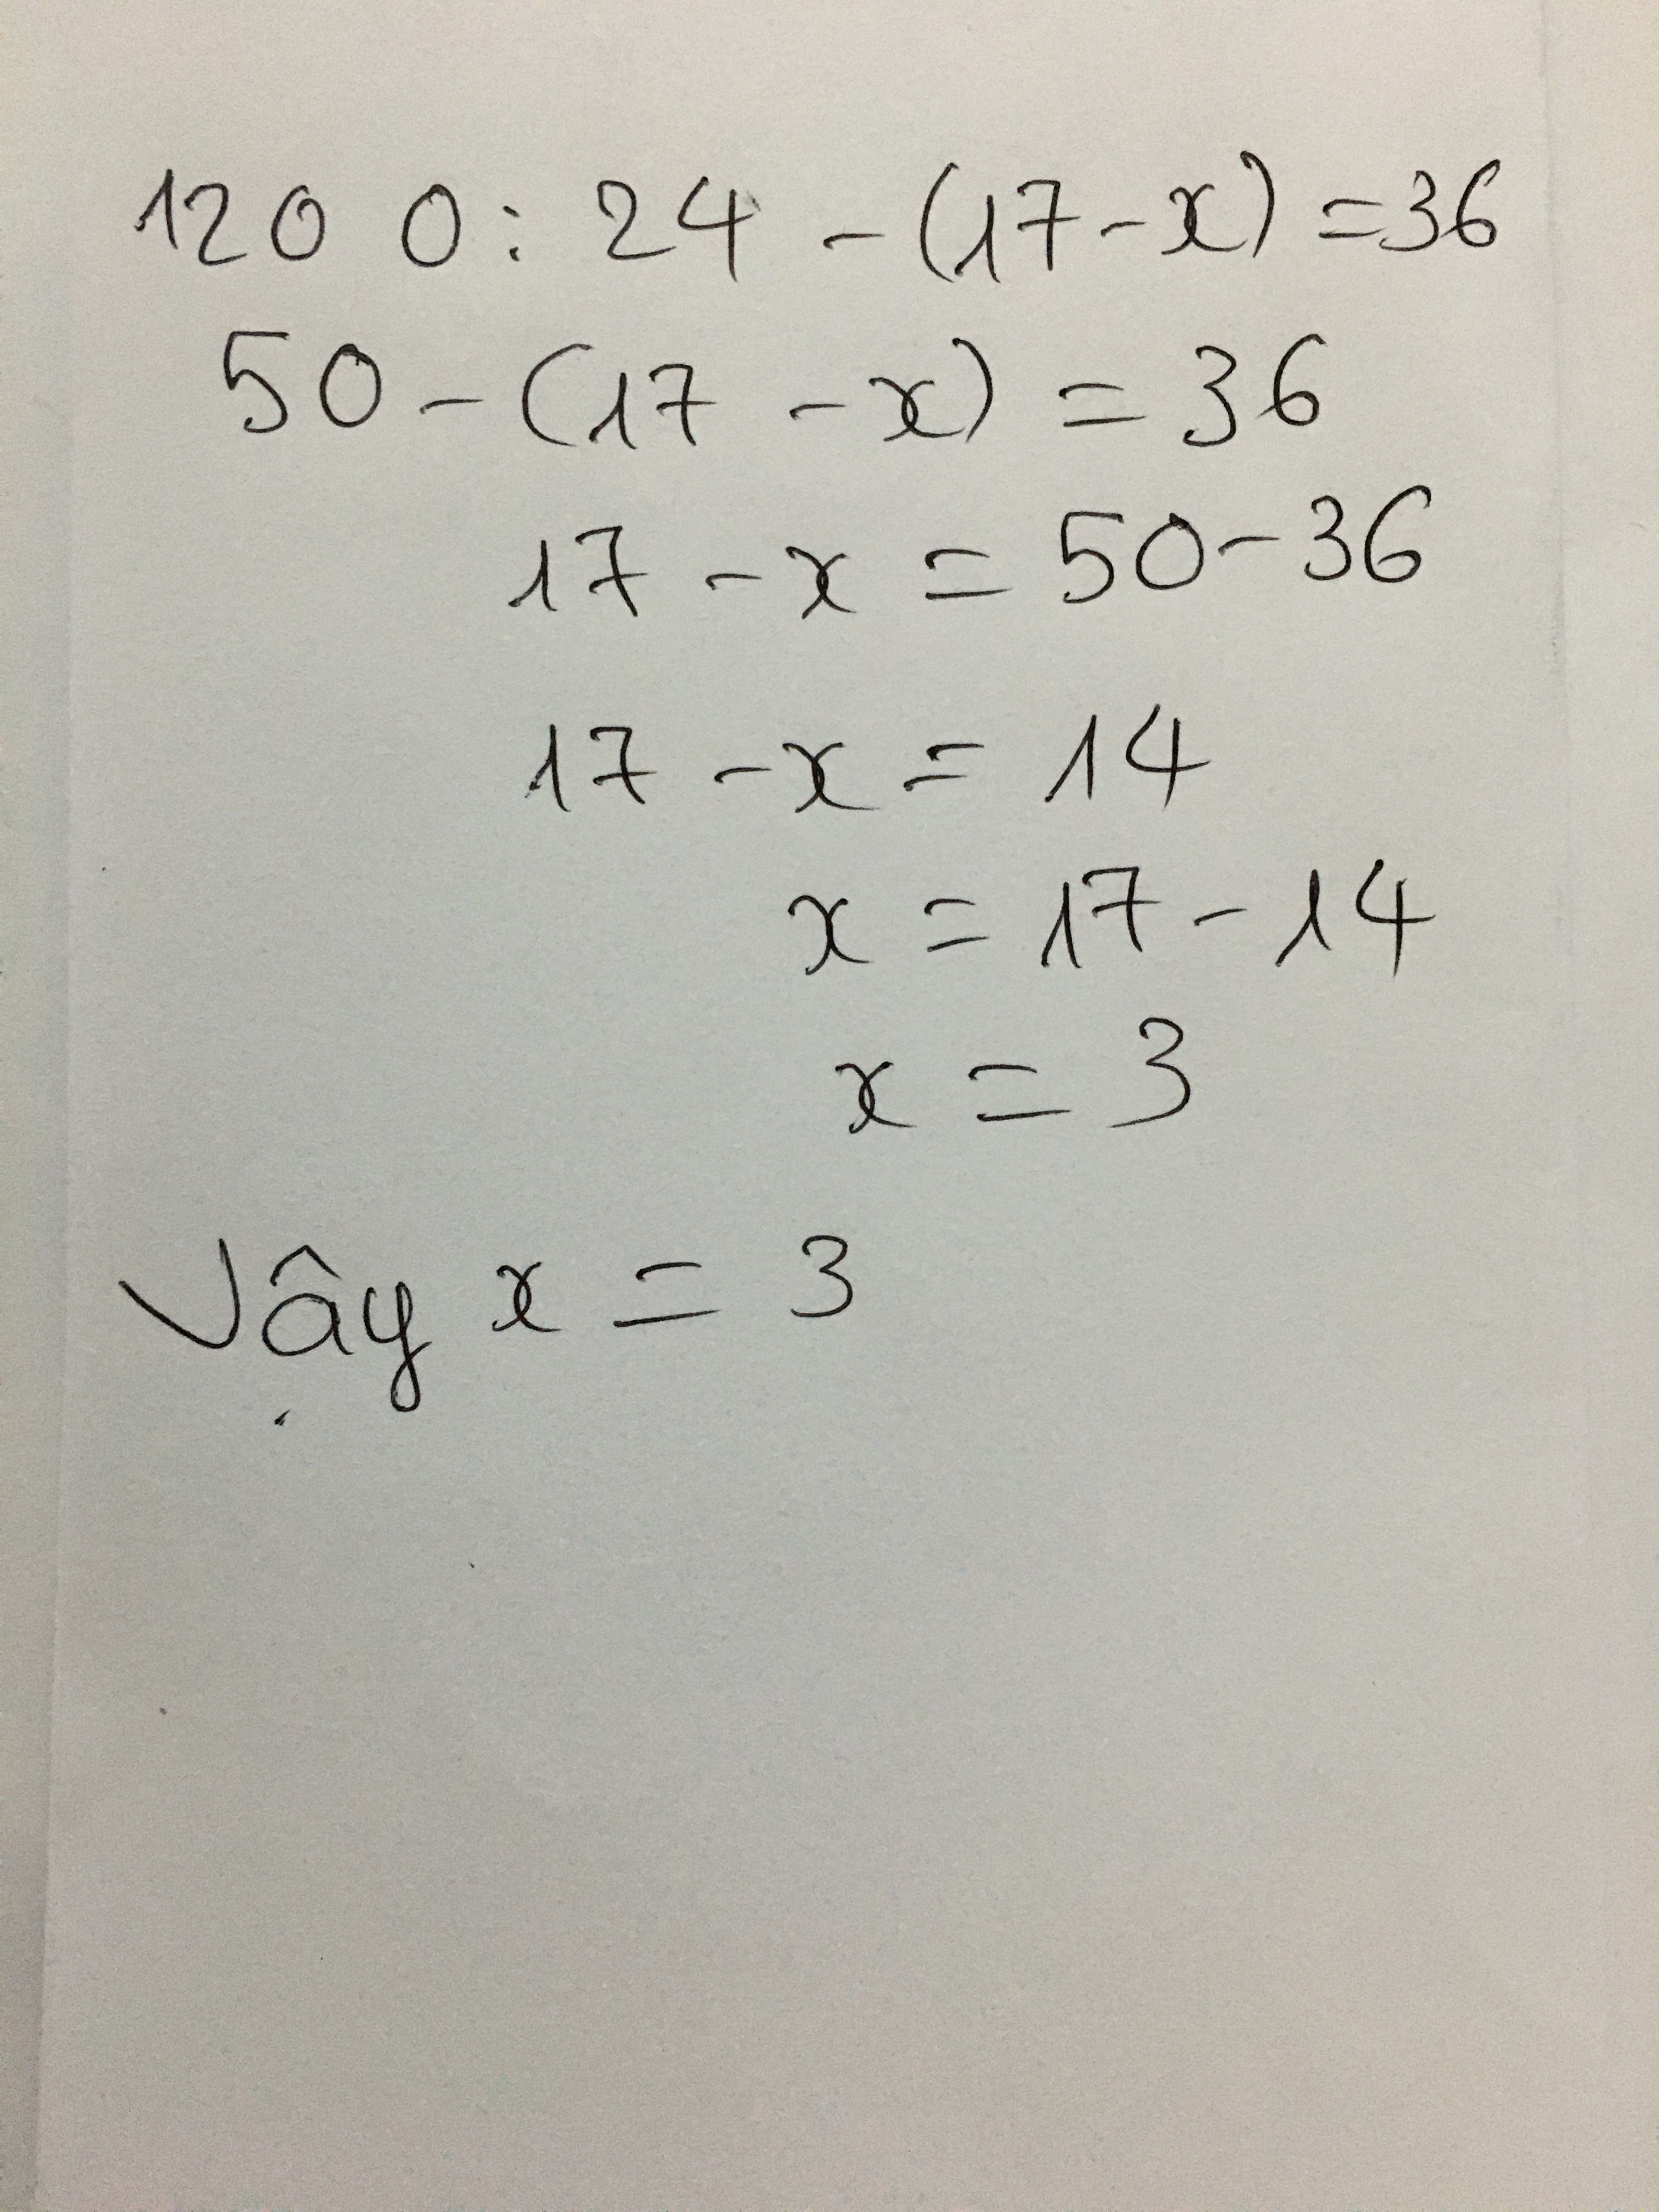 1200 : 24 - (17 - x) = 36
50 - (17 - x) = 36
17 - x = 50 - 36
17 - x = 14
x = 17 - 14
x = 3
Vậy x = 3